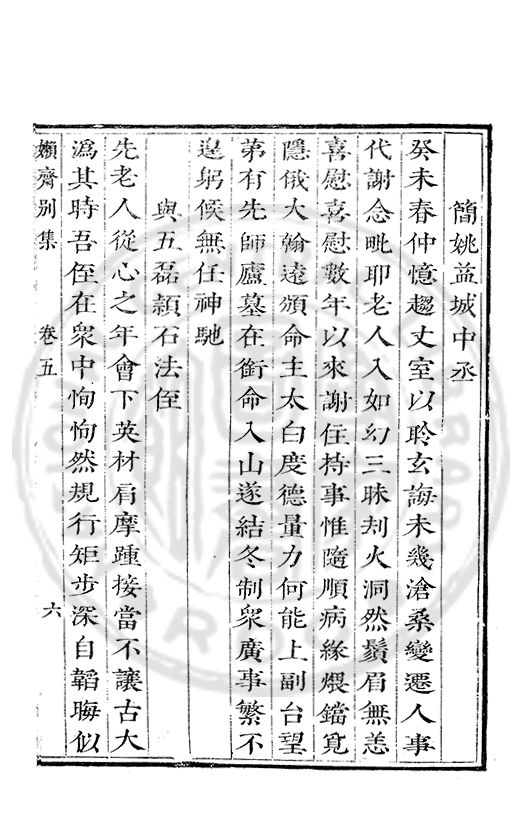 簡姚益城中丞
癸未春仲憶趨丈室以聆玄誨未幾滄桑變遷人事
代謝念毗耶老人入如幻三昧刦火洞然鬚眉無恙
喜慰喜慰數年以來謝住持事惟隨順病緣煨鐺覓
隱俄大翰遠頒命主太白度德量力何能上副台望
第有先師廬墓在銜命入山遂結冬制衆廣事繁不
遑躬候無任神馳
與五磊頴石法侄
先老人從心之年會下英材肩摩踵接當不讓古大
溈其時吾侄在衆中恂恂然規行矩步深自韜晦似
嬾齋別集 卷五 六